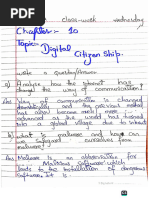 class-work wednesday
Chapter:- 10
Topic:- Digital
Citizen Ship.
write a question/Answer
a) Analyse how the internet has
change the way of communication.
Ans) Way of communication is changed
dramatically and
has allow become more
advanced as the world has turned
into a global village due to inter
b) what is malware and how can
we safeguard ourselves from
it.
Ans) Malware is an abbreviation for
Malicious software which
leads to the installation of dangerous
software. It is